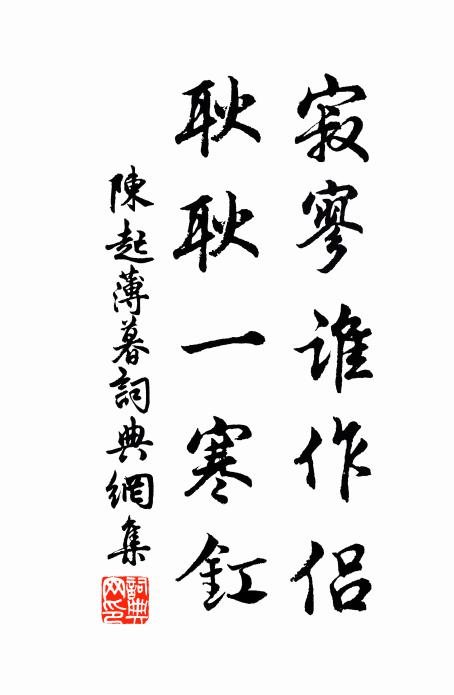 寂寥谁作侣
耿耿一寒釭
陳起薄暮詞典網集
詞典网印